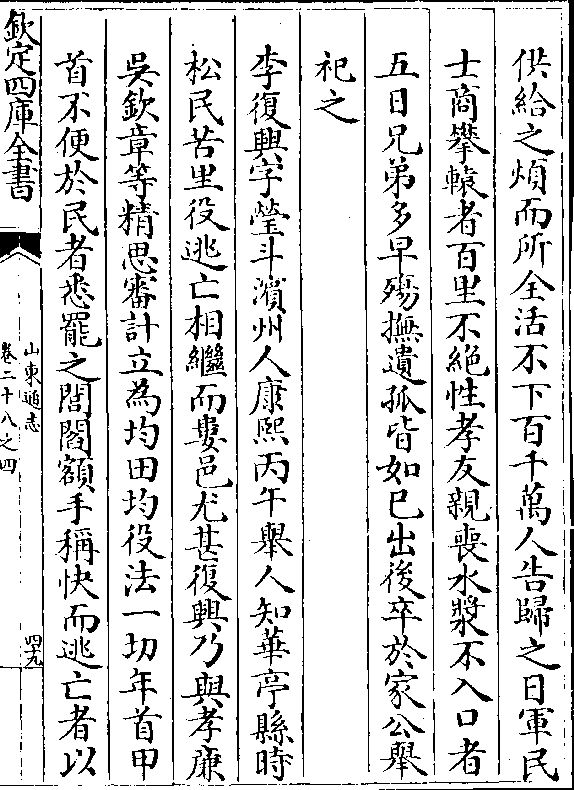 供給之煩而所全活不下百千萬人告歸之日軍民
士商攀轅者百里不絶性孝友親喪水漿不入口者
五日兄弟多早殤撫遺孤皆如已出後卒於家公舉
祀之
李復興字瑩斗濱州人康熙丙午舉人知華亭縣時
松民苦里役逃亡相繼而婁邑尤甚復興乃與孝廉
吳欽章等精思審計立為均田均役法一切年首甲
首不便於民者悉罷之閭閻額手稱快而逃亡者以
欽定四庫全書
山東通志
卷二十八之四
四十九